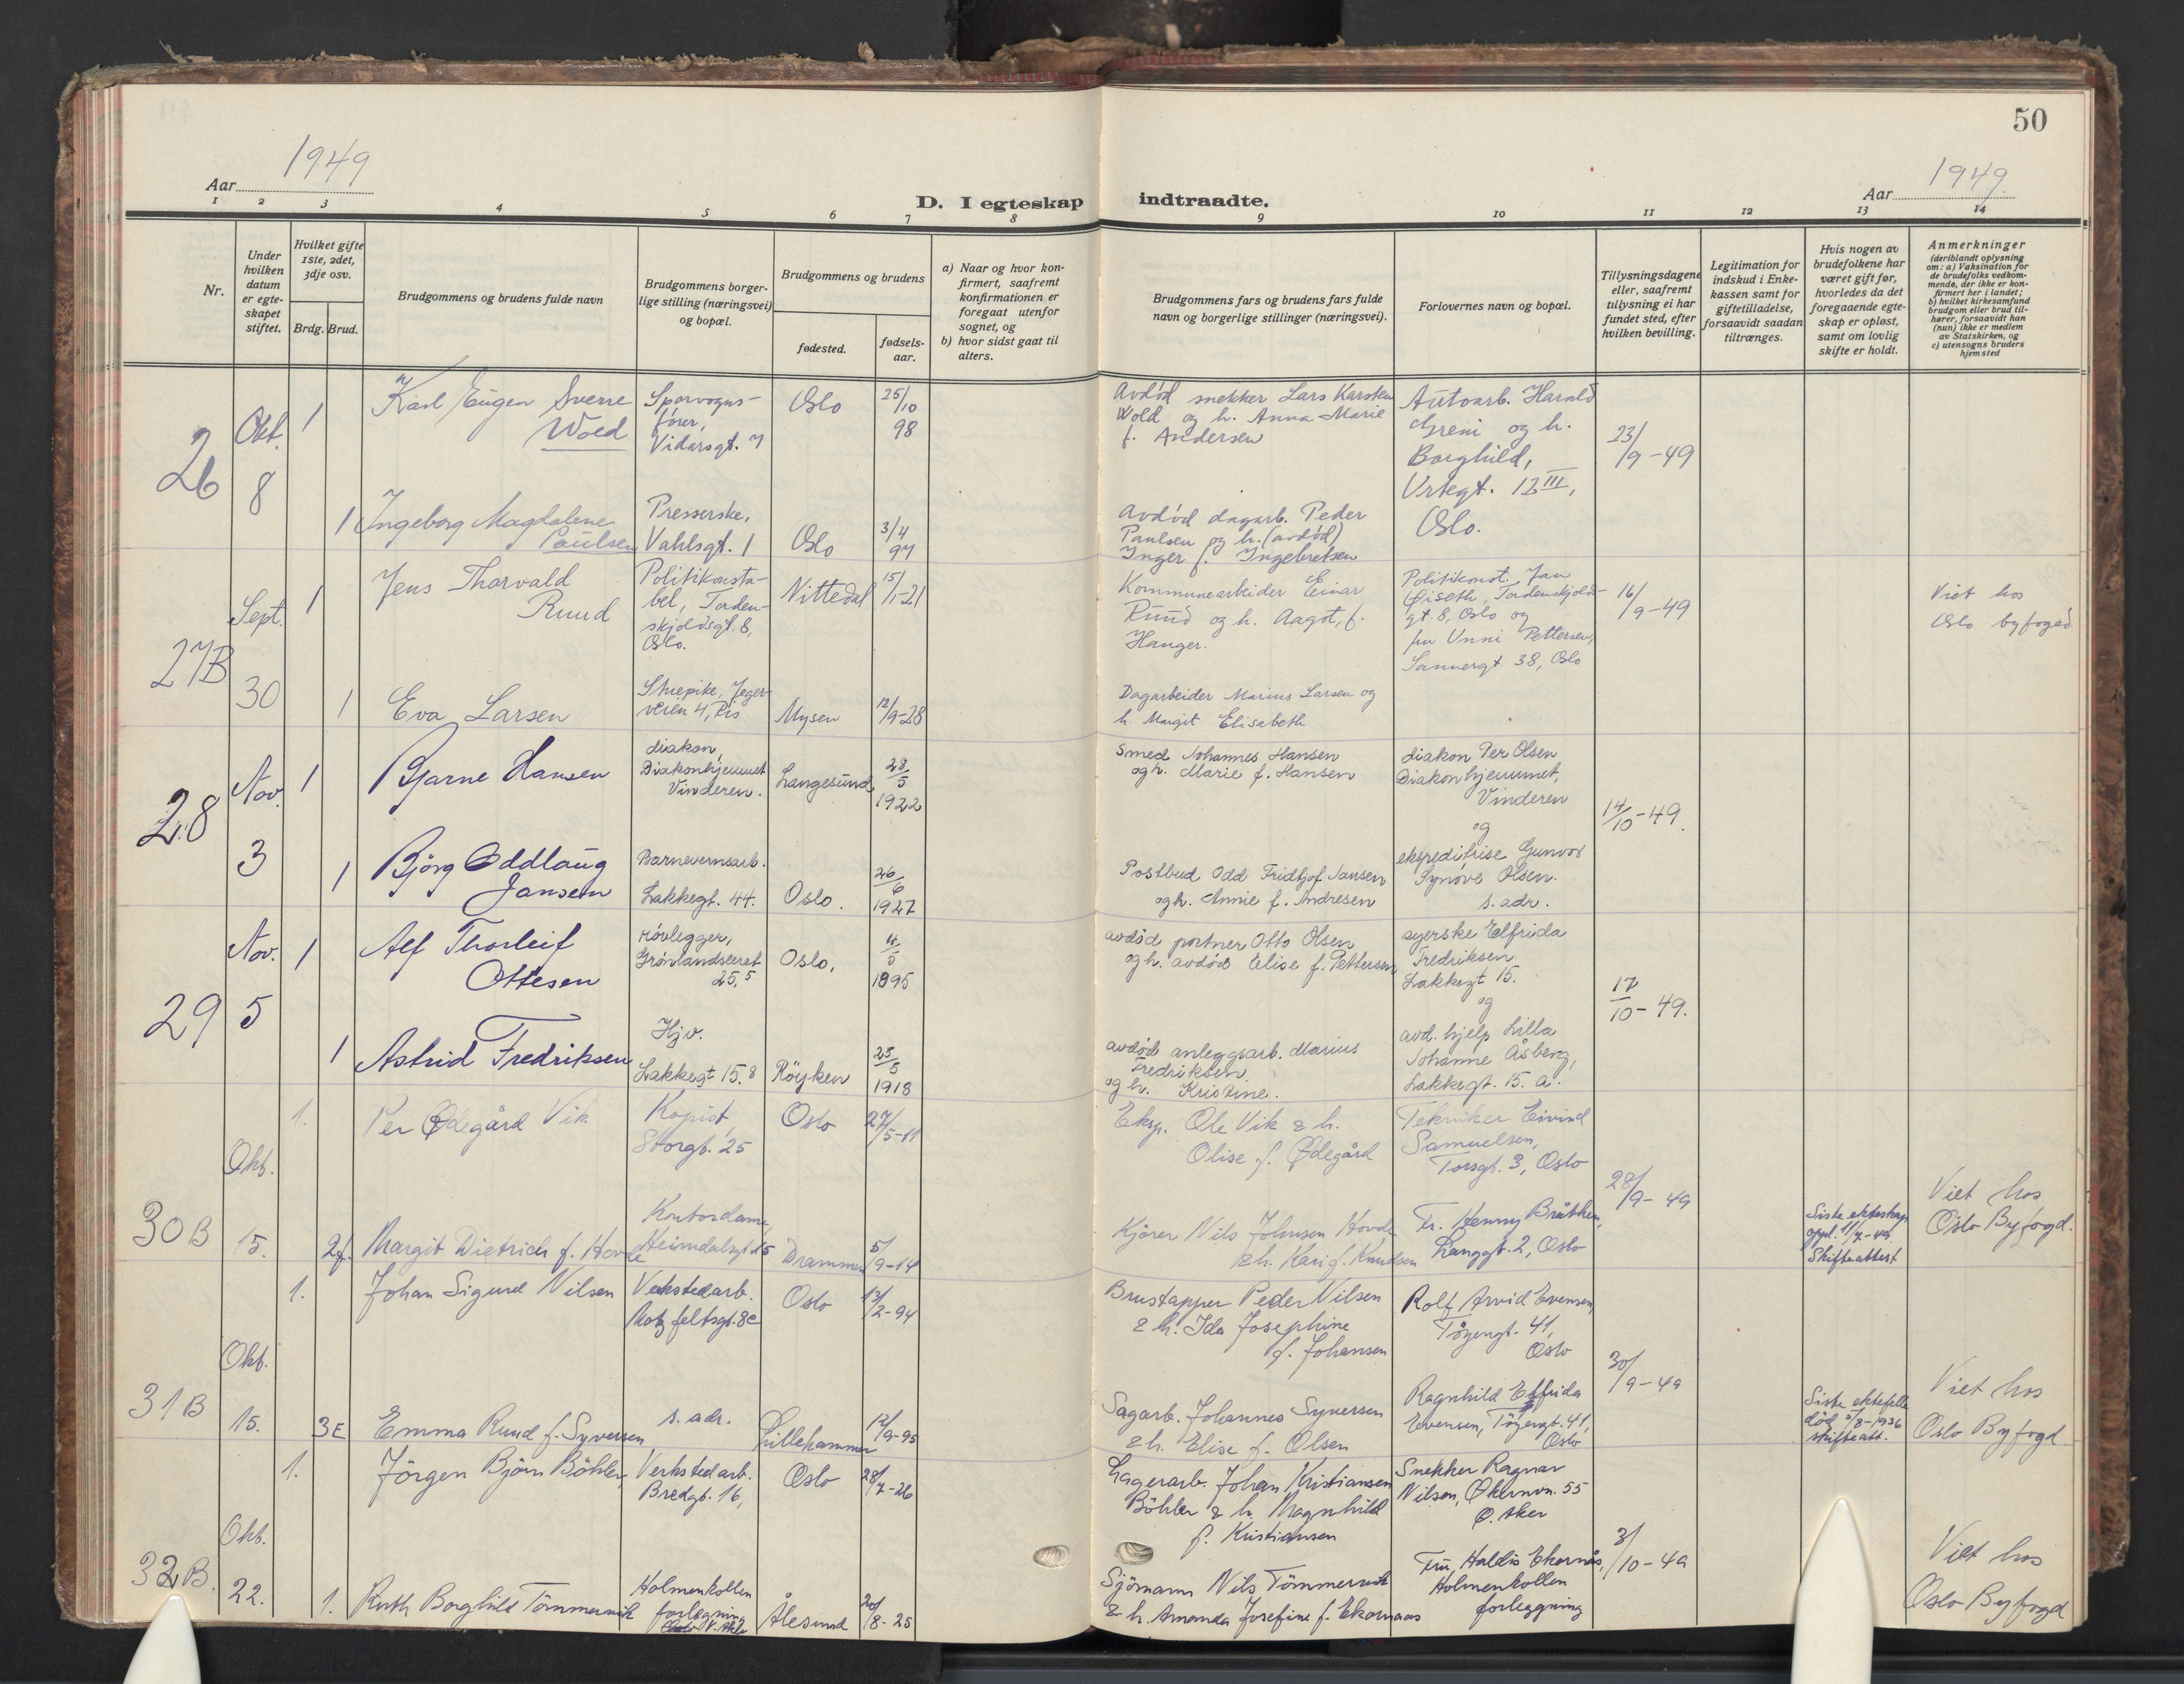 50
Aar 1949
D. I egteskap indtraadte.
Aar 1949
1 2 3 4 5 6 7 8 9 10 11 12 13 14
Nr.
Under
hvilken
datum
er egte-
skapet
stiftet.
Hvilket gifte
1ste, 2det,
3dje osv.
Brdg. Brud.
Brudgommens og brudens fulde navn
Brudgommens borger-
lige stilling (næringsvei)
og bopæl.
Brudgommens og brudens
fødested.
fødsels-
aar.
a) Naar og hvor kon-
firmert, saafremt
konfirmationen er
foregaat utenfor
sognet, og
b) hvor sidst gaat til
alters.
Brudgommens fars og brudens fars fulde
navn og borgerlige stillinger (næringsvei).
Forlovernes navn og bopæl.
Tillysningsdagene
eller, saafremt
tillysning ei har
fundet sted, efter
hvilken bevilling.
Legitimation for
indskud i Enke-
kassen samt for
giftetilladelse,
forsaavidt saadan
tiltrænges.
Hvis nogen av
brudefolkene har
været gift før,
hvorledes da det
foregaaende egte-
skap er opløst,
samt om lovlig
skifte er holdt.
Anmerkninger
(deriblandt oplysning
om: a) Vaksination for
de brudefolks vedkom-
mende, der ikke er kon-
firmert her i landet;
b) hvilket kirkesamfund
brudgom eller brud til-
hører, forsaavidt han
(hun) ikke er medlem
av Statskirken, og
c) utensogns bruders
hjemsted
26
Okt.
8
1
Karl Eugen Sverre
Wold
Sporvogns-
fører,
Vidarsgt. 7
Oslo
25/10
98
Avdød snekker Lars Karsten
Wold og h. Anna Marie
f. Andersen
Autoarb. Harald
Greni og h.
Borghild,
Urtegt. 12 III,
Oslo.
23/9-49
1
Ingeborg Magdalene
Paulsen
Presserske,
Vahlsgt. 1
Oslo
3/4
97
Avdød dagarb. Peder
Paulsen og h. (avdød)
Inger f. Ingebretsen
27B
Sept.
30
1
Jens Thorvald
Ruud
Politikonsta-
bel, Torden-
skjoldsgt. 8,
Oslo.
Nittedal
15/1-21
Kommunearbeider Einar
Ruud og h. Aagot, f.
Hauger.
Politikonst. Jan
Øiseth, Tordenskjolds-
gt. 8, Oslo og
fru Unni Pettersen,
Sannergt. 38, Oslo
16/9-49
Viet hos
Oslo byfoged
1
Eva Larsen
Stuepike, Jeger-
veien 4, Ris
Mysen
12/9-28
Dagarbeider Marius Larsen og
h. Margit Elisabeth
28
Nov.
3
1
Bjarne Hansen
diakon,
Diakonhjemmet
Vinderen.
Langesund
28/5
1922
Smed Johannes Hansen
og h. Marie f. Hansen
diakon Per Olsen
Diakonhjemmet,
Vinderen
og
ekspeditrise Gunvor
Synøve Olsen.
s. adr.
14/10-49.
1
Bjørg Oddlaug
Jansen
Barnevernsarb.
Lakkegt. 44.
Oslo.
26/6
1927
Postbud Odd Fridtjof Jansen
og h. Annie f. Andresen
29
Nov.
5
1
Alf Thorleif
Ottesen
rørlegger,
Grønlandsleret
25,5
Oslo,
4/5
1895
avdød portner Otto Olsen
og h. avdød Elise f. Pettersen
syerske Elfrida
Fredriksen
Lakkegt 15.
og
avd. hjelp Lilla
Johanne Åsberg,
Lakkegt. 15. a.
17/10-49.
1
Astrid Fredriksen
Hjv.
Lakkegt 15.8
Røyken
25/5
1918
avdød anleggsarb. Marius
Fredriksen
og h. Kristine.
30B
Okt.
15.
1.
Per Ødegård Vik
Kopist,
Storgt. 25
Oslo
27/5-11
Eksp. Ole Vik & h.
Olise f. Ødegård
Tekniker Eivind
Samuelsen,
Torsgt. 3, Oslo
28/9-49
2f
Margit Dietrich f. Hovde
Kontordame,
Heimdalsgt 25
Drammen
5/9-14
Kjører Nils Johnsen Hovde
& h. Kari f. Knudsen
Fr. Henny Bråthen,
Langgt. 2, Oslo
Siste ekteskap
oppl. 11/7-49
Skifteattest
Viet hos
Oslo Byfogd.
31B
Okt.
15.
1.
Johan Sigurd Nilsen
Verkstedarb.
Motzfeltsgt. 8c
Oslo
13/2-94
Brustapper Peder Nilsen
& h. Ida Josephine
f. Johansen
Rolf Arvid Evensen,
Tøyengt. 41,
Oslo
30/9-49
3E
Emma Ruud f. Syversen
s. adr.
Lillehammer
12/9-95
Sagarb. Johannes Syversen
& h. Elise f. Olsen
Ragnhild Elfrida
Evensen, Tøyengt. 41,
Oslo
Siste ektefelle
død 5/8-1936
skifteatt.
Viet hos
Oslo Byfogd
32B.
Okt.
22.
1.
Jörgen Björn Böhler,
Verkstedarb.
Bredgt. 16,
Oslo
28/7-26
Lagerarb. Johan Kristiansen
Böhler & h. Magnhild
f. Kristiansen
Snekker Ragnar
Nilsen, Økernvn. 55
Ø. Aker
3/10-49
1.
Ruth Borghild Tömmervik
Holmenkollen
forlegning
V. Aker
Ålesund
20/8-25
Sjömann Nils Tömmervik
& h. Amanda Josefine f. Ekornaas
Fru Haldis Ekornås,
Holmenkollen
forleggning
Viet hos
Oslo Byfogd